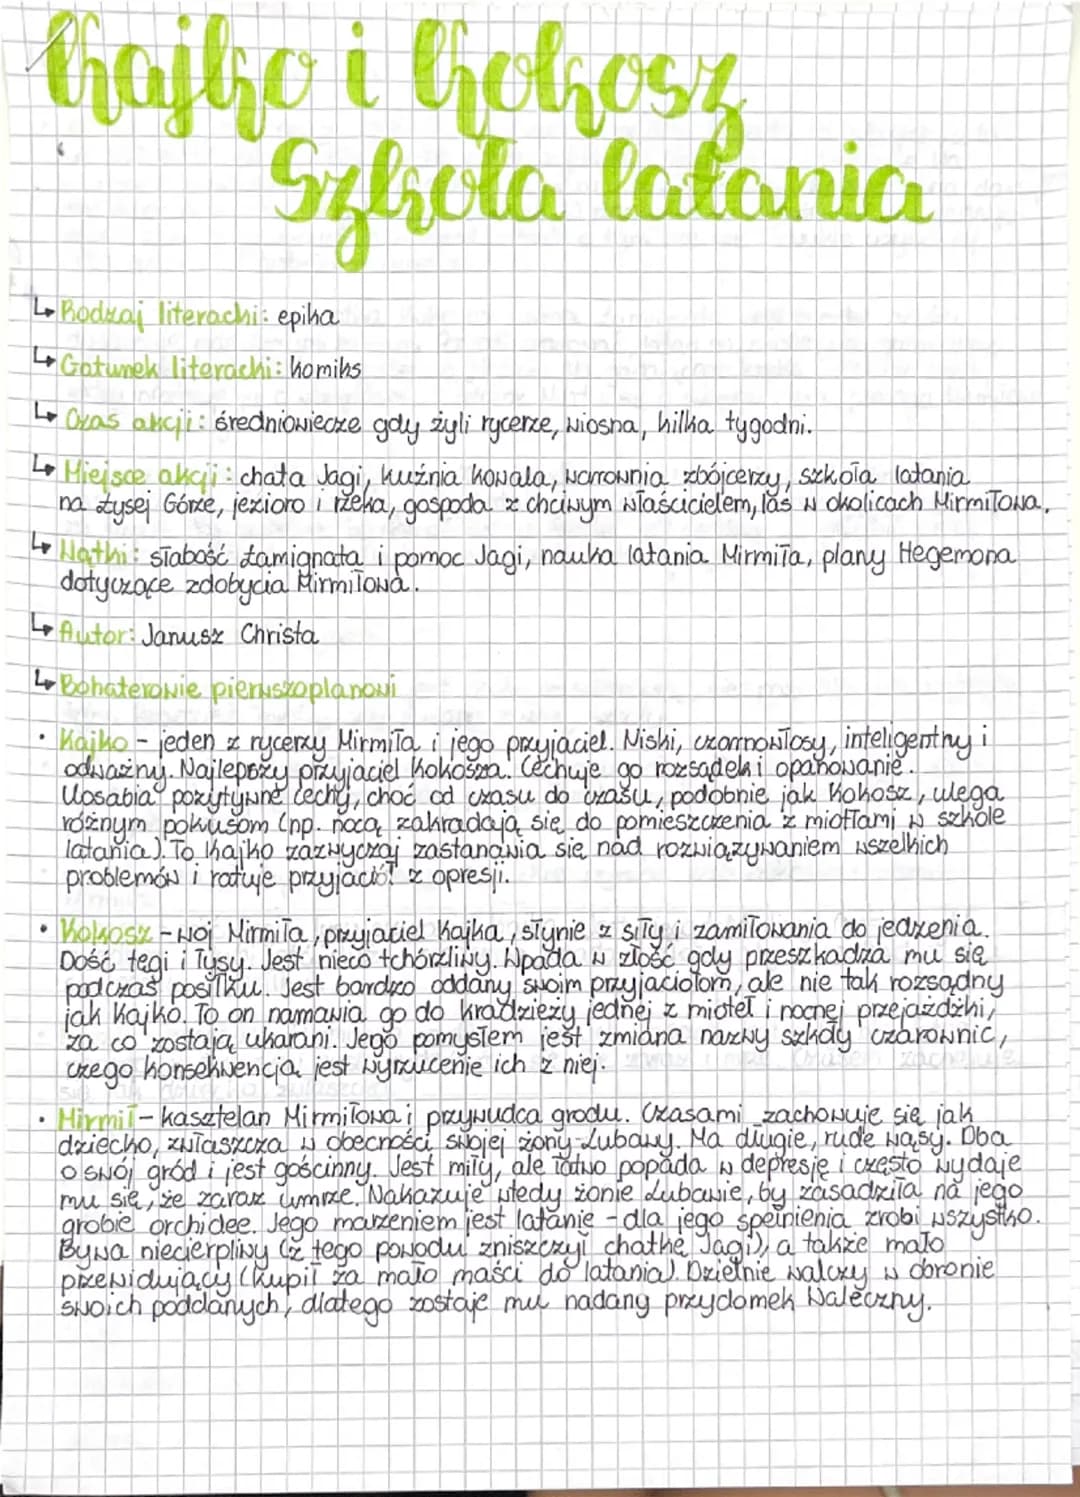 Kajko i Kokosz
Szkoła latania
↳ Rodzaj literacki: epika
↳ Gatunek literacki: komiks
↳ Czas akcji: średniowiecze gdy żyli rycerze, wiosna, kilka tygodni.
↳ Miejsce akcji: chata Jagi, kuźnia kowala, warownia zbójcerzy, szkoła latania
na Łysej Górze, jezioro i rzeka, gospoda z chciwym właścicielem, las w okolicach Mirmiłowa.
↳ Wątki: słabość Łamignata i pomoc Jagi, nauka latania Mirmiła, plany Hegemona
dotyczące zdobycia Mirmiłowa.
↳ Autor: Janusz Christa
↳ Bohaterowie pierwszoplanowi
• Kajko - jeden z rycerzy Mirmiła i jego przyjaciel. Niski, czarnowłosy, inteligentny i
odważny. Najlepszy przyjaciel Kokosza. Cechuje go rozsądek i opanowanie.
Uosabia pozytywne cechy, choć od czasu do czasu, podobnie jak Kokosz, ulega
różnym pokusom (np. nocą zakradają się do pomieszczenia z miotłami w szkole
latania). To Kajko zazwyczaj zastanawia się nad rozwiązywaniem wszelkich
problemów i ratuje przyjaciół z opresji.
• Kokosz - woj Mirmiła, przyjaciel Kajka, słynie z siły i zamiłowania do jedzenia.
Dość tęgi i łysy. Jest nieco tchórzliwy. Wpada w złość gdy przeszkadza mu się
podczas posiłku. Jest bardzo oddany swoim przyjaciołom, ale nie tak rozsądny
jak Kajko. To on namawia go do kradzieży jednej z mioteł i nocnej przejażdżki,
za co zostają ukarani. Jego pomysłem jest zmiana nazwy szkoły czarownic,
czego konsekwencją jest wyrzucenie ich z niej.
• Mirmił - kasztelan Mirmiłowa i przywódca grodu. Czasami zachowuje się jak
dziecko, zwłaszcza w obecności swojej żony-Lubawy. Ma długie, rude wąsy. Dba
o swój gród i jest gościnny. Jest miły, ale łatwo popada w depresję i często wydaje
mu się, że zaraz umrze. Nakazuje wtedy żonie Lubawie, by zasadziła na jego
grobie orchidee. Jego marzeniem jest latanie - dla jego spełnienia zrobi wszystko.
Bywa niecierpliwy (z tego powodu zniszczył chatkę Jagi), a także mało
przewidujący (kupił za mało maści do latania). Dzielnie walczy w obronie
swoich poddanych, dlatego zostaje mu nadany przydomek Waleczny.